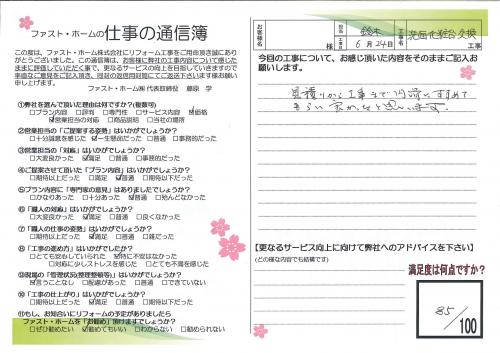 ファスト・ホームの仕事の通信簿
この度は、ファスト・ホーム株式会社にリフォーム工事をご用命頂き誠にあり
がとうございました。この通信簿は、お客様に弊社の工事内容について感じた
ままに評価していただくき事で、更なるサービスの向上を目指していきますので
率直なご意見をご記入頂き、同封の返信用封筒にてご返送下さいます様お願い
申し上げます。
ファスト・ホーム㈱ 代表取締役 藤原 学
①弊社を選んで頂いた理由は何ですか?(複数可)
□プラン内容 □評判 □専門性 □サービス内容 ☑価格
☑営業担当の対応 □商品説明 □当社の雰囲
②営業担当の「ご提案する姿勢」はいかがでしょうか?
□十分誠意を感じた ☑一生懸命だった □普通 □事務的だった
③営業担当の「対応」はいかがでしょうか?
□大変良かった ☑満足 □普通 □事務的だった
④ご提案させて頂いた「プラン内容」はいかがでしょうか?
□期待以上だった ☑満足 □普通 □期待以下だった
⑤プラン内容に「専門家の意見」はありましたでしょうか?
□かなりあった □十分あった ☑普通 □殆んどなかった
⑥「職人の対応」はいかがでしょうか?
□大変良かった ☑満足 □普通 □良くなかった
⑦「職人の仕事の姿勢」はいかがでしょうか?
□期待以上だった ☑満足 □普通 □雑だった
⑧「工事の進め方」はいかがでしたか?
□とても安心していられた ☑特に不安はなかった
□対応に少しストレスを感じた □とても不満を感じた
⑨現場の「管理状況(整理整頓等)」はいかがでしょうか?
☑言うことなし □配慮があった □普通 □できていない
⑩「工事の仕上がり」はいかがでしょうか?
□期待以上だった □満足 ☑普通 □期待以下だった
⑪もし、お知合いにリフォームの予定がありましたら
ファスト・ホームを「お勧め」頂けますでしょうか?
□ぜひ勧めたい ☑勧めてもいい □わからない □勧められない
お客様名
様
担当
鈴木
工事日
6月24日
工事名
洗面化粧台交換
工事
今回の工事について、お感じ頂いた内容をそのままご記入お
願いします。
見積りから工事まで円滑にすすめて
もらい 良かったと思います
【更なるサービス向上に向けて弊社へのアドバイスを下さい】
(どの様な内容でも結構です)
満足度は何点ですか?
85/100